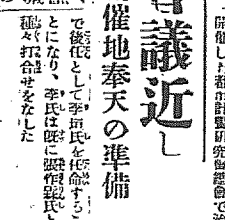 開催した都市計畫研究
議近し
催地奉天の準備
で後任として李垣氏を任命するこ
とになり、李氏は既に張作霖氏と
種々打合せをなした